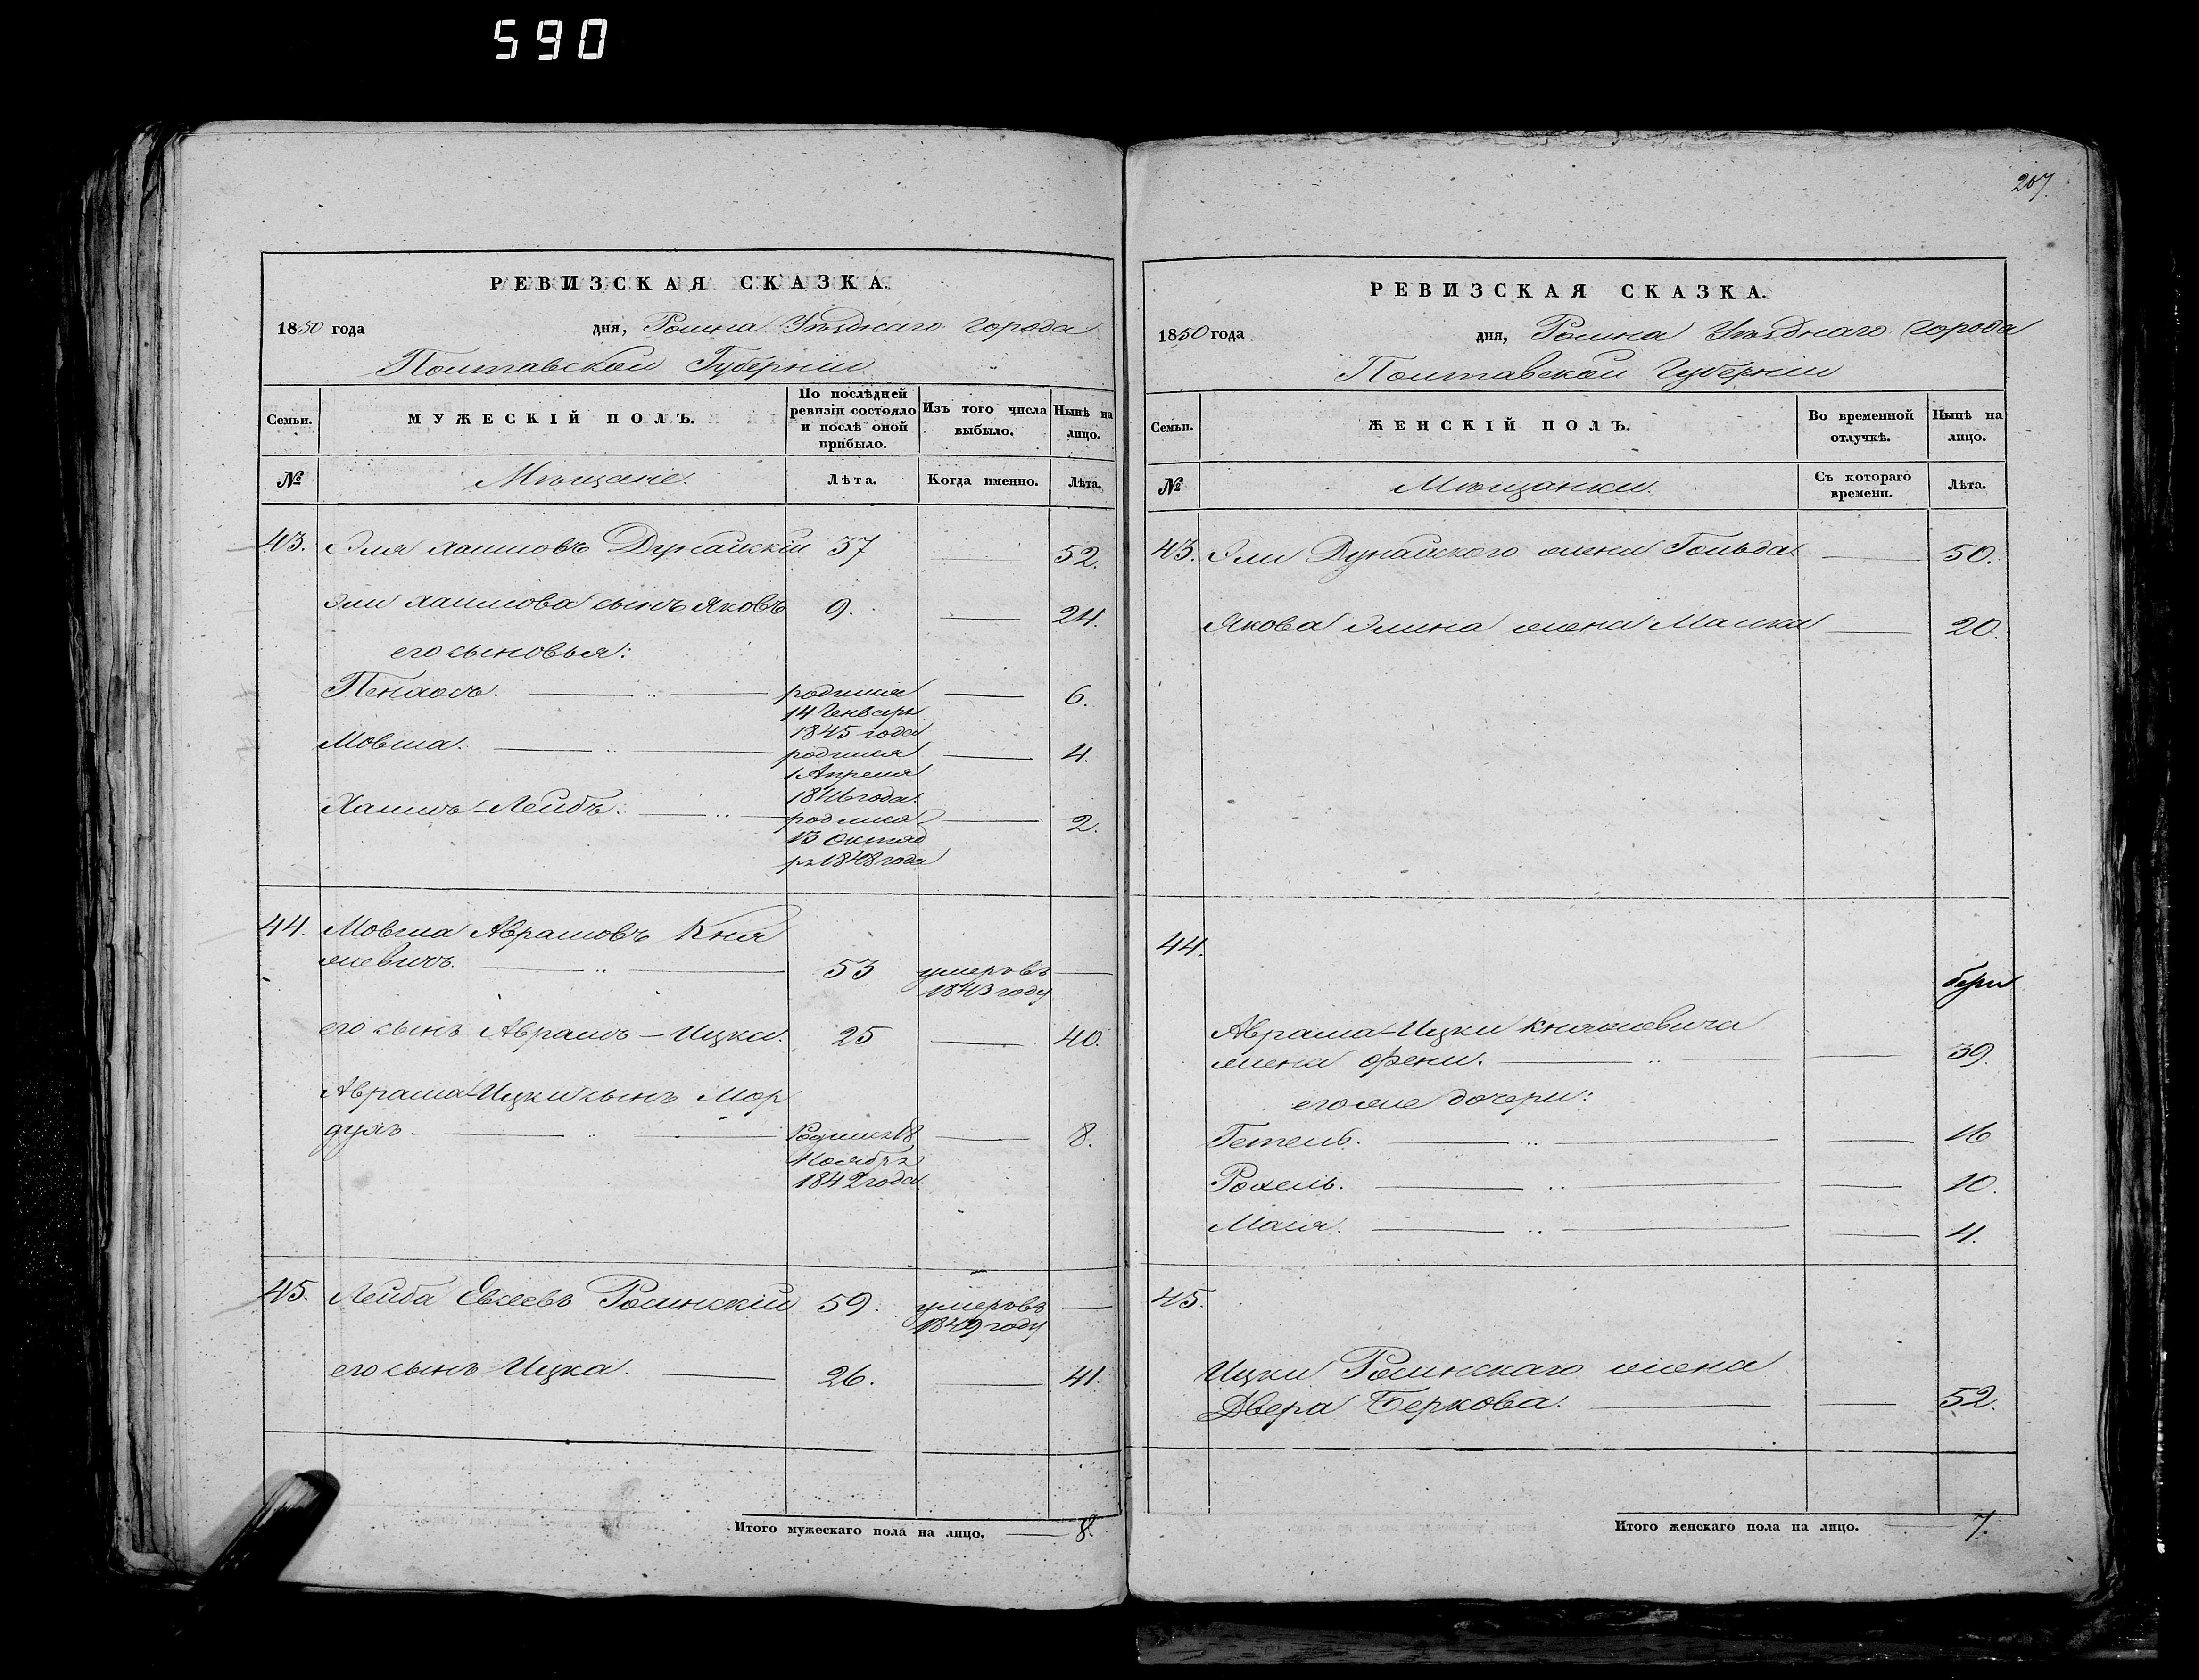 590
РЕВИЗСКАЯ СКАЗКА.
1850 года дня, Ромна Уѣзднаго Города
Полтавской Губерніи
Семьи. МУЖЕСКІЙ ПОЛЪ. По послѣдней ревизіи состояло и послѣ оной прибыло. Изъ того числа выбыло. Нынѣ на лицо.
№ Мѣщане. Лѣта. Когда именно. Лѣта.
43. Эля Хаимовъ Дунайскій 37 52.
Эли Хаимова сынъ Яковъ 9. 24.
его сыновья:
Пенхосъ. родился 14 Генваря 1845 года 6.
Мовша. родился 1 Апреля 1846 года. 4.
Хаимъ-Лейбъ. родился 13 Октяб ря 1848 года 2.
44. Мовша Абрамовъ Кня
жевичъ. 53 умеръ въ 1843 году
его сынъ Абрамъ-Ицка. 25 40.
Абрама-Ицки сынъ Мор
духъ. Родился 18 Ноября 1842 года. 8.
45. Лейба Евсеевъ Роминскій 59. умеръ въ 1849 году
его сынъ Ицка. 26. 41.
Итого мужескаго пола на лицо. 8.
207
РЕВИЗСКАЯ СКАЗКА.
1850 года дня, Ромна Уѣзднаго Города
Полтавской Губерніи
Семьи. ЖЕНСКІЙ ПОЛЪ. Во временной отлучкѣ. Нынѣ на лицо.
№ Мѣщанки. Съ котораго времени. Лѣта.
43. Эли Дунайского жена Гольда 50.
Якова Элина жена Малка 20.
44.
Абрама-Ицки Княжевича
жена Фени. 39.
его же дочери:
Гетель. 16
Рохель. 10.
Мася. 4.
45.
Ицки Роминскаго жена
Двера Беркова. 52.
Итого женскаго пола на лицо. 7.